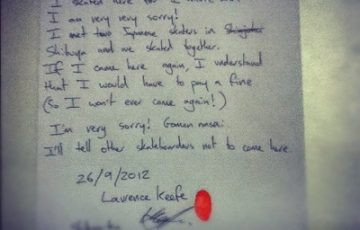 I skated here for 1 more
I am very very sorry!
I met two Japanese skaters in
Shibuya and we skated together.
If I came here again, I understand
that I would have to pay a fine
(So I won't ever come again!)
I'm very sorry! Gomen nasai
I'll tell other skateboarders not to come here.
26/9/2012
Laurence Keefe